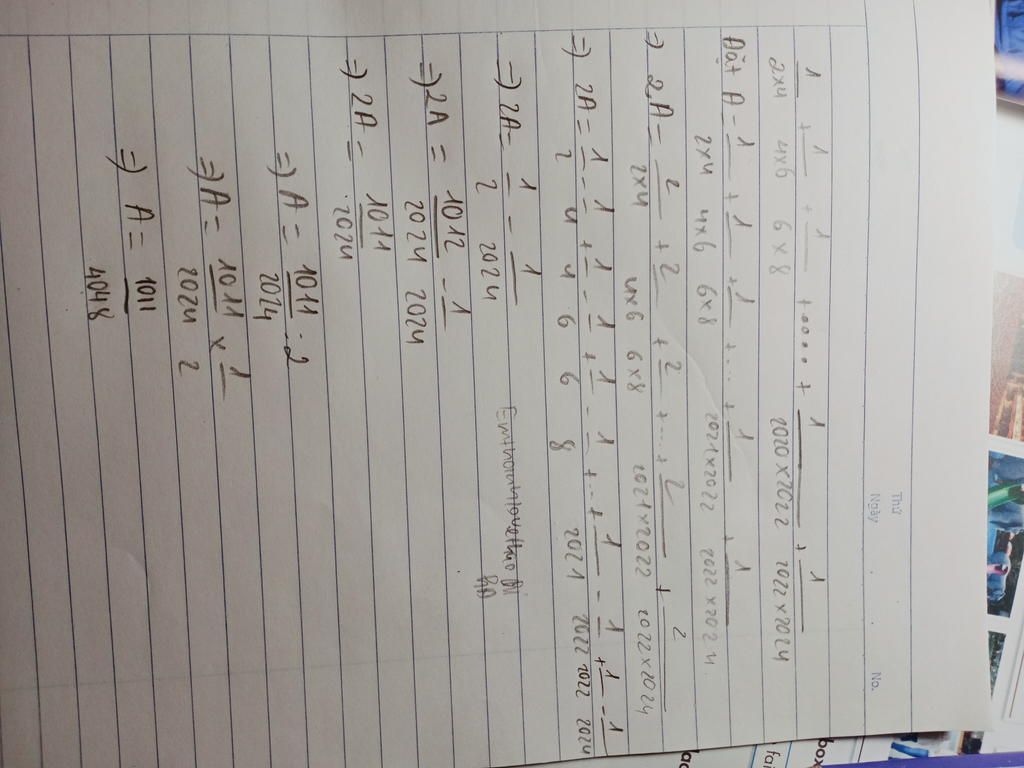 Thứ
Ngày
No.
1/2x4 + 1/4x6 + 1/6x8 + ..... + 1/2020x2022 + 1/2022x2024
Đặt A = 1/2x4 + 1/4x6 + 1/6x8 + ... + 1/2021x2022 + 1/2022x2024
=) 2A = 2/2x4 + 2/4x6 + 2/6x8 + ... + 2/2021x2022 + 2/2022x2024
=) 2A = 1/2 - 1/4 + 1/4 - 1/6 + 1/6 - 1/8 + ... + 1/2021 - 1/2022 + 1/2022 - 1/2024
=) 2A = 1/2 - 1/2024
=) 2A = 1012/2024 - 1/2024
=) 2A = 1011/2024
=) A = 1011/2024 : 2
=) A = 1011/2024 x 1/2
=) A = 1011/4048
box